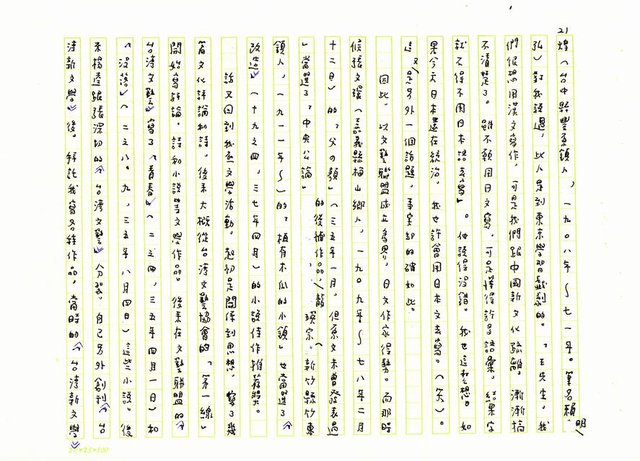 21
煌（台中縣豐原鎮人，一九〇八年～七一年。筆名賴明
弘）對我強過，此人是到東京學習戲劇的。「王先生，我
們很想用漢文寫作，可是我們跟中國新文化疏離，漸漸搞
不清楚了。雖不願用日文寫，可是懂得許多語彙，結果
就不得不用日本語來寫」。他說得沒錯。我也這麼想。如
果今天日本還在統治，我也許會用日本文去寫。（笑）。
這又是另外一個話題，事實卻的確如此。
因此，以文藝聯盟成立為界，日文作家得勢。而那時
候張文環（嘉義縣梅山鄉人，一九〇九年～七八年二月
十二日）的「父の顏」（三五年一月，但原文未曾發表過
）當選了「中央公論」的後補作品／龍瑛宗，新竹縣竹東
鎮人，一九一一年～）的「植有木瓜的小鎮」當選了《
改造》（十九之四，三七年四月）的小說佳作推荐獎。
話又回到我底文學活動。起初是關係到思想，寫了幾
篇文化評論和詩，後來大概從台灣文藝協會的「第一線」
開始寫評論、詩和小說等文學作品。後來在文藝聯盟的《
台灣文藝》寫了《青春》（二之四，三五年四月一日）和
《沒落》（二之八．九，三五年八月四日）這些小說。後
來楊逵跟張深切的《台灣文藝》分裂，自己另外創刊《台
灣新文學》後。拜託我寫各種作品，當時的《台灣新文學》
25×23=500